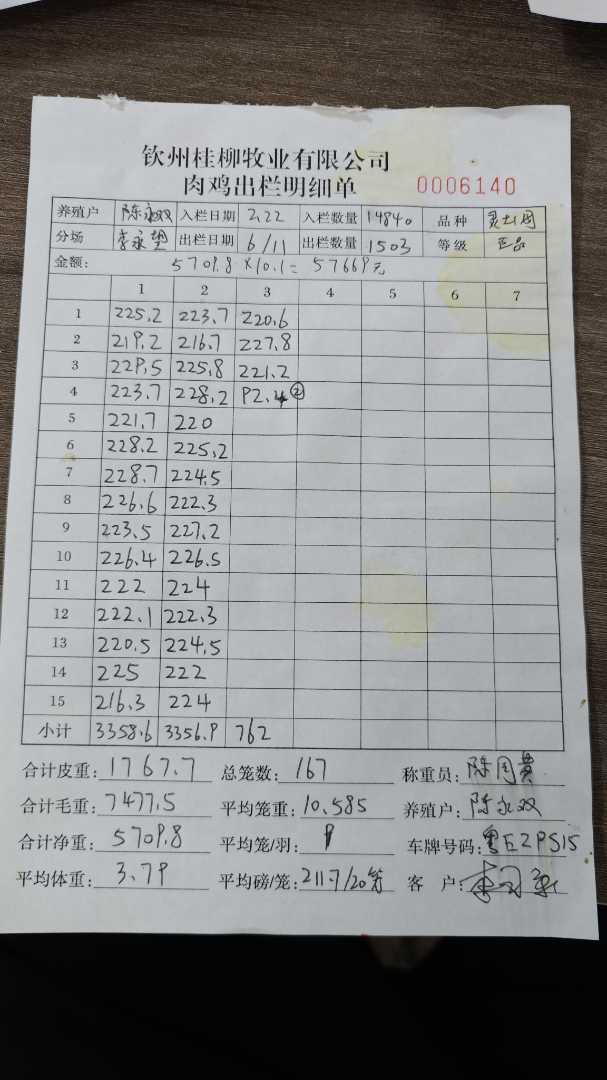 钦州桂柳牧业有限公司
肉鸡出栏明细单 0006140
养殖户 陈永双 入栏日期 2.22 入栏数量 14840 品种
分场 李永塱 出栏日期 6/11 出栏数量 1503 等级 正品
金额: 5709.8×10.1=57669元
1 2 3 4 5 6 7
1 225.2 223.7 220.6
2 219.2 216.7 227.8
3 229.5 225.8 221.2
4 223.7 228.2 92.4②
5 221.7 220
6 228.2 225.2
7 228.7 224.5
8 226.6 222.3
9 223.5 227.2
10 226.4 226.5
11 222 224
12 222.1 222.3
13 220.5 224.5
14 225 222
15 216.3 224
小计 3358.6 3356.9 762
合计皮重: 1767.7 总笼数: 167 称重员: 陈周贵
合计毛重: 7477.5 平均笼重: 10.585 养殖户: 陈永双
合计净重: 5709.8 平均笼/羽: 9 车牌号码: 粤EZPS15
平均体重: 3.79 平均磅/笼: 211.7/20笼 客 户: